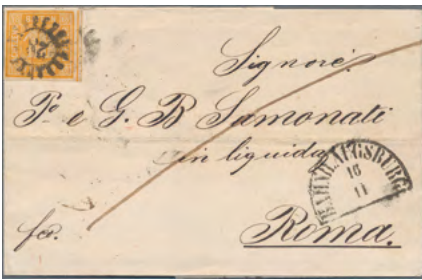 Signori
P.o e G. B Samonati
in liquidaz.
BAHNH. AUGSBURG
16
11
fco.
Roma.